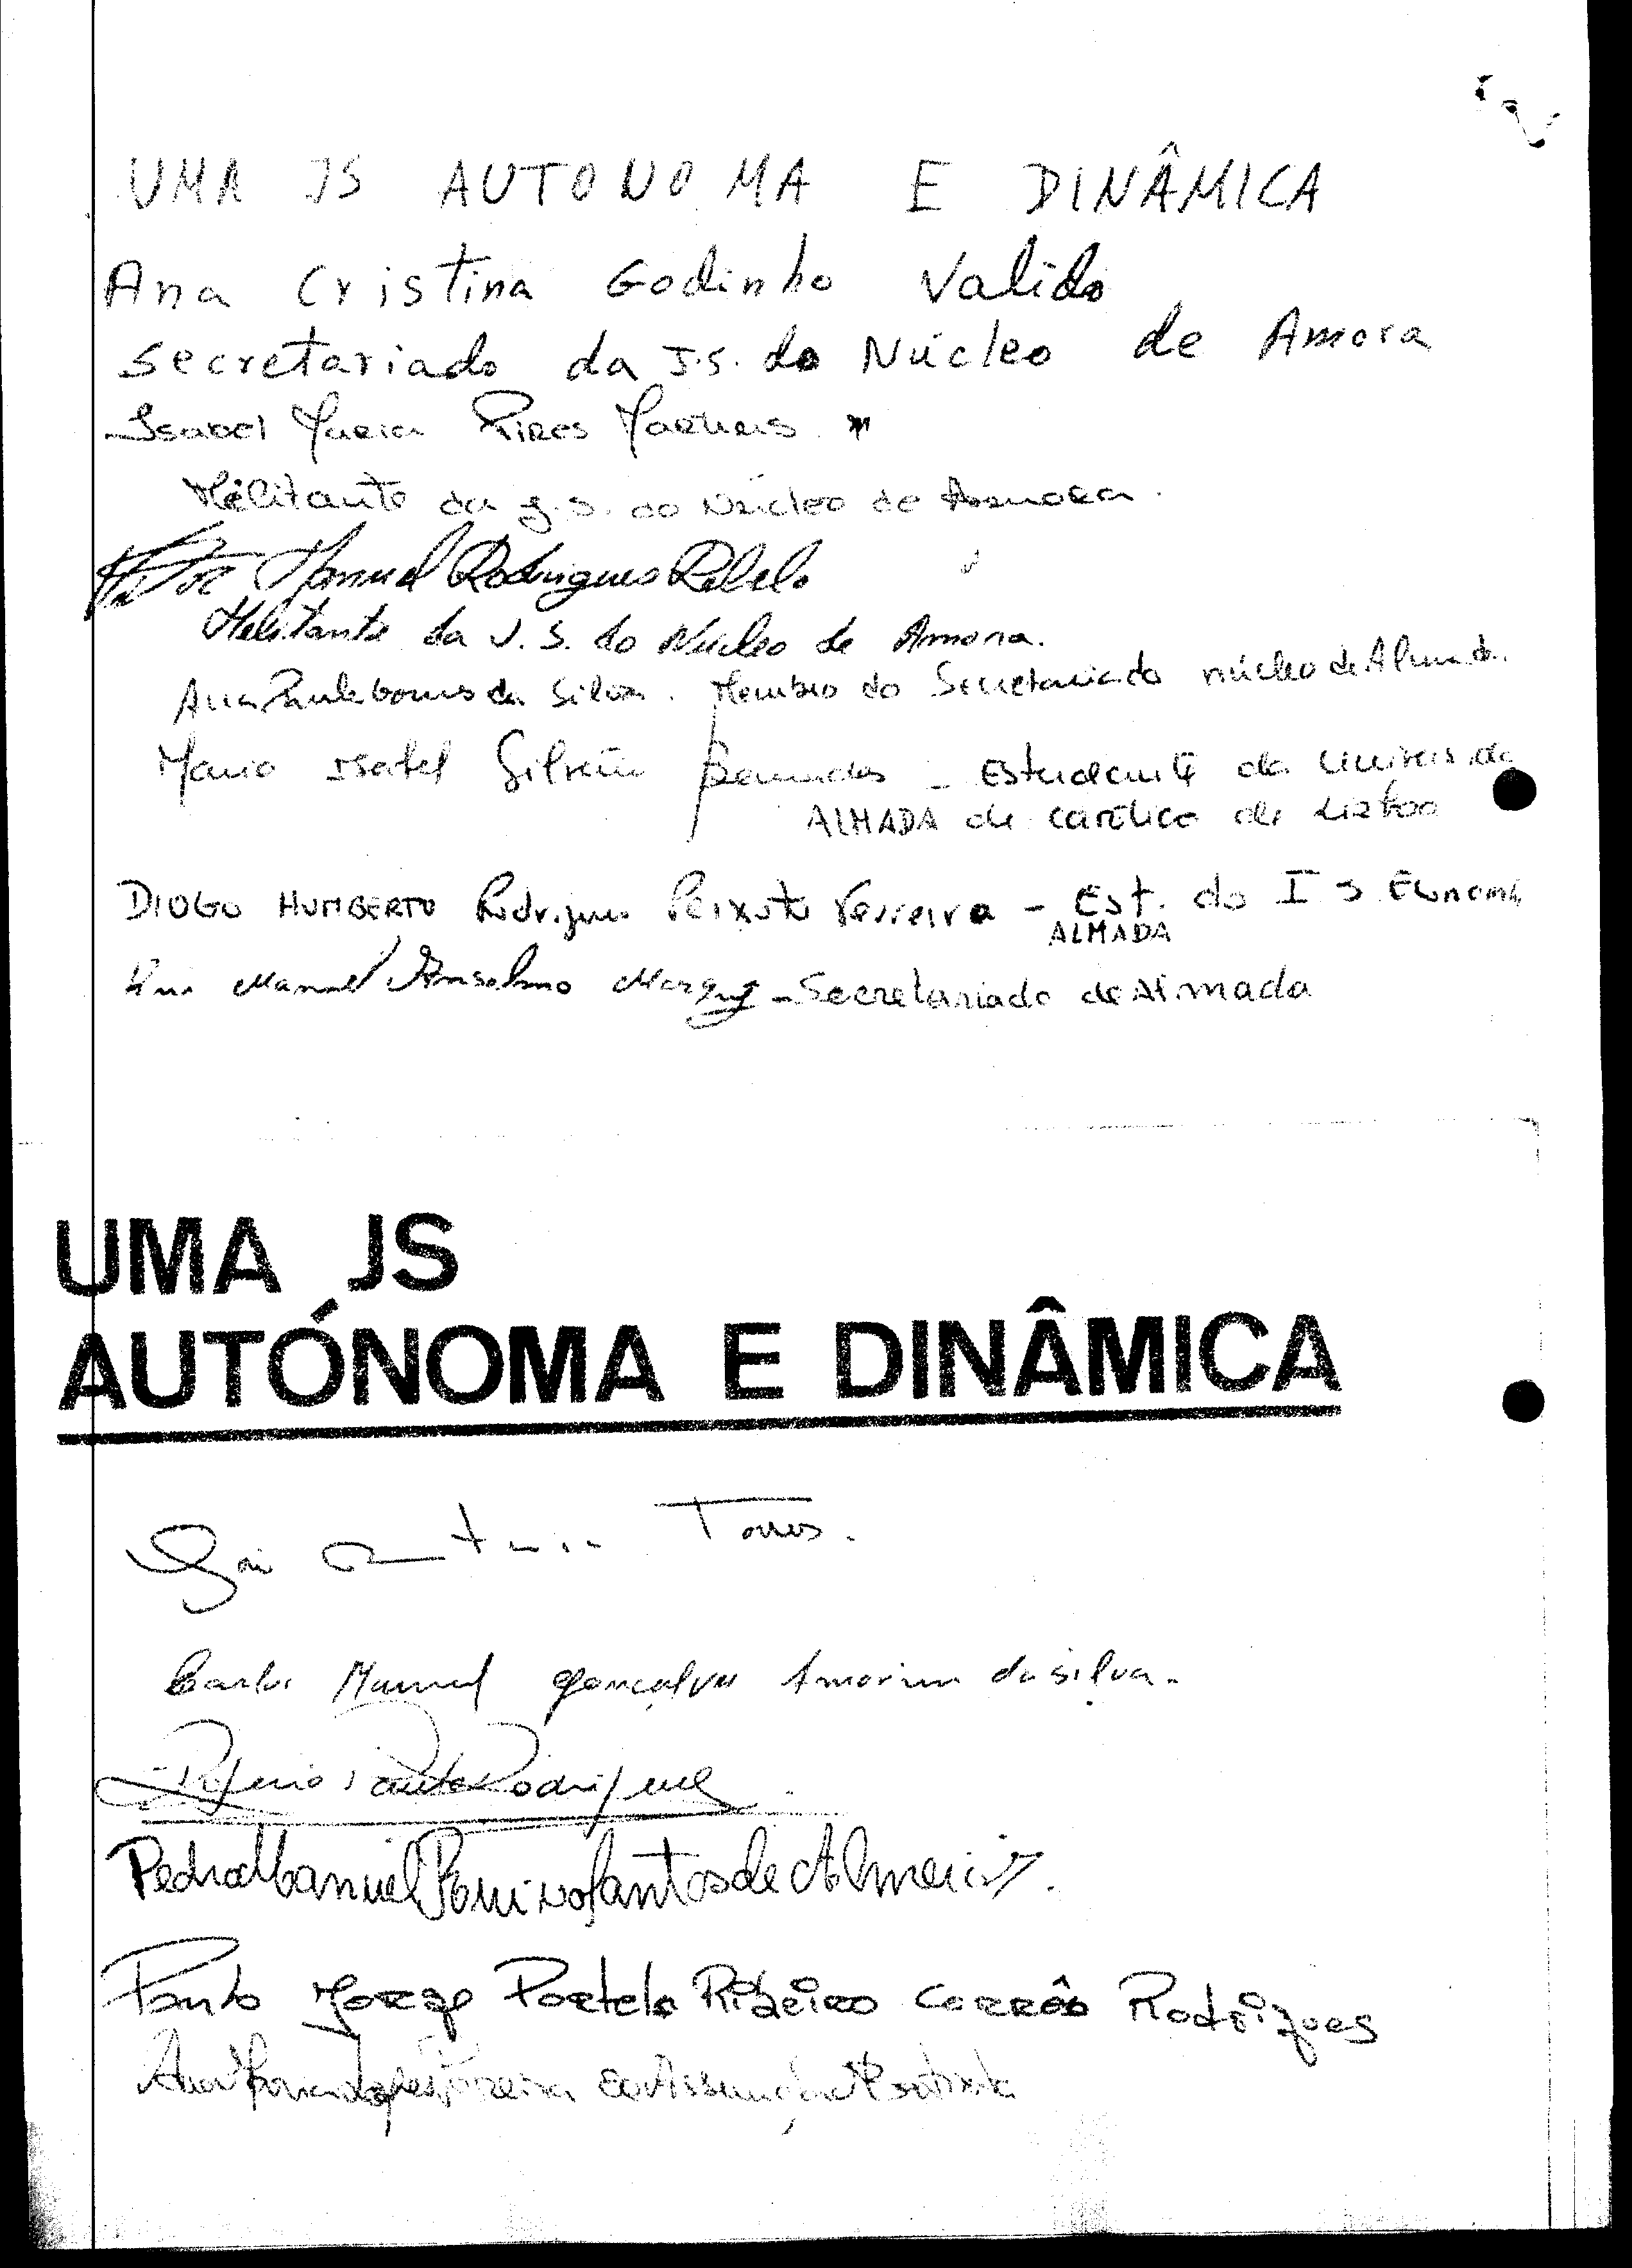 UMA JS AUTONOMA E DINÂMICA
Ana Cristina Godinho Valido
Secretariado da J.S. do Núcleo de Amora
Isabel Maria Pires Martins
Militante da J.S. do Núcleo de Amora.
Vitor Manuel Rodrigues Rebelo
Militante da J.S. do Núcleo de Amora.
Ana Paula Gomes da Silva. Membro do Secretariado núcleo de Almada.
Maria Isabel Bermudes - Estudante da Univers. da
ALMADA de católica de Lisboa
DIOGO HUMBERTO Rodrigues Peixoto Ferreira - Est. do I S Economi
ALMADA
Manuel Anselmo Marques - Secretariado de Almada
UMA JS
AUTÓNOMA E DINÂMICA
Torres.
Carlos Manuel Gonçalves Amorim da Silva.
Rogério Rodrigues
Pedro Manuel Santos de Almeida.
Paulo Jorge Portela Ribeiro Corrêa Rodrigues
Ana Maria Lopes da Assunção